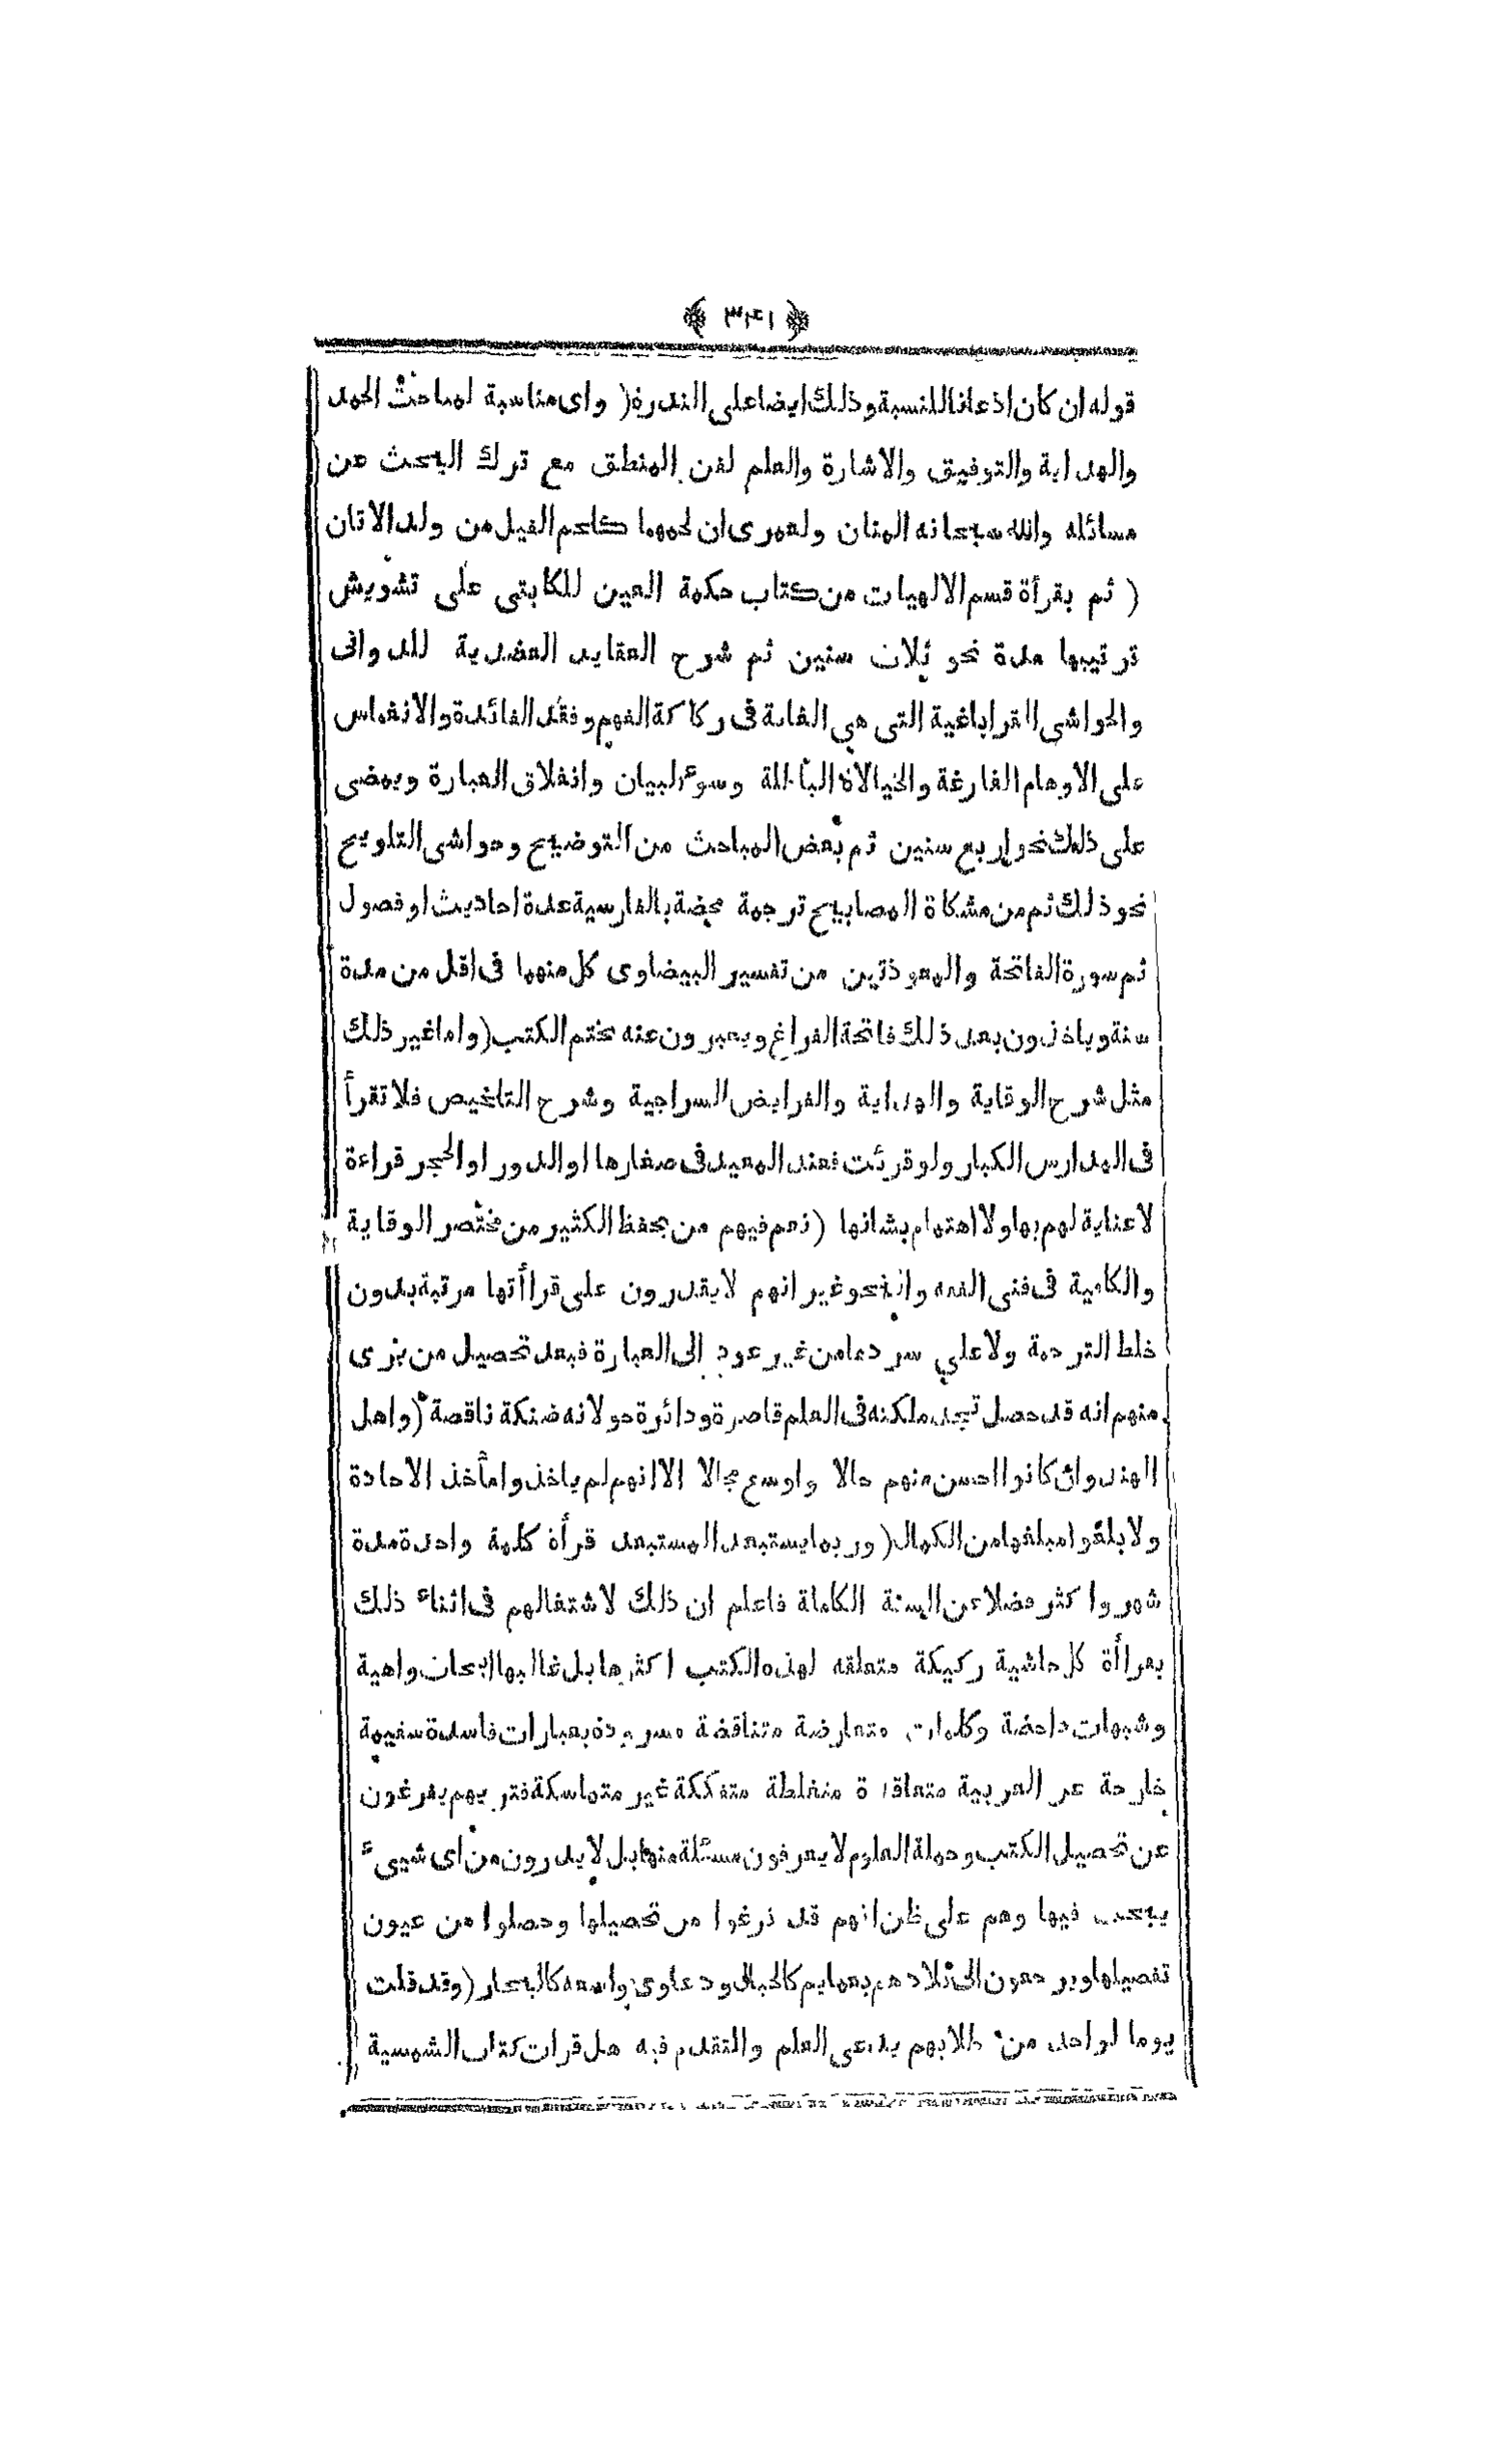 ﴿ ٣٤١ ﴾
قوله ان كان اذعانا للنسبة وذلك ايضا على الندرة ( واى مناسبة لمباحث الحمد
والهداية والتوفيق والاشارة والعلم لفن المنطق مع ترك البحث عن
مسائله والله سبحانه المنان ولعمرى ان لحمهما كلحم الفيل من ولد الاتان
( ثم بقرأة قسم الالهيات من كتاب حكمة العين للكابتى على تشويش
ترتيبها مدة نحو ثلاث سنين ثم شرح العقايد العضدية للدوانى
والحواشى القراباغية التى هى الغاية فى ركاكة الفهم وفقد الفائدة والانغماس
على الاوهام الفارغة والخيالاة الباطلة وسوء البيان وانغلاق العبارة ويمضى
على ذلك نحو اربع سنين ثم بعض المباحث من التوضيح وحواشى التلويح
نحو ذلك ثم من مشكاة المصابيح ترجمة محضة بالفارسية عدة احاديث او فصول
ثم سورة الفاتحة والمعوذتين من تفسير البيضاوى كل منهما فى اقل من مدة
سنة وياخذون بعد ذلك فاتحة الفراغ ويعبرون عنه بختم الكتب ( واما غير ذلك
مثل شرح الوقاية والهداية والفرايض السراجية وشرح التلخيص فلا تقرأ
فى المدارس الكبار ولو قرئت فعند المعيد فى صغارها او الدور او الحجر قراءة
لا عناية لهم بها ولا اهتمام بشانها ( نعم فيهم من يحفظ الكثير من مختصر الوقاية
والكافية فى فنى الفقه والنحو غير انهم لا يقدرون على قراأتها مرتبة بدون
خلط الترجمة ولا على سردها من غير عود الى العبارة فبعد تحصيل من يرى
منهم انه قد حصل تجد ملكته فى العلم قاصرة ودائرة جولانه ضنكة ناقصة ( واهل
الهند وان كانوا احسن منهم حالا واوسع مجالا الا انهم لم ياخذوا مأخذ الاجادة
ولا بلغوا مبلغها من الكمال ( وربما يستبعد المستبعد قرأة كلمة واحدة مدة
شهر واكثر فضلا عن السنة الكاملة فاعلم ان ذلك لاشتغالهم فى اثناء ذلك
بقراأة كل حاشية ركيكة متعلقه لهذه الكتب اكثرها بل غالبها ابحاث واهية
وشبهات داحضة وكلمات متعارضة متناقضة مسرودة بعبارات فاسدة سفيهة
خارجة عن العربية متعاقدة منغلطة متفككة غير متماسكة فتريهم يفرغون
عن تحصيل الكتب وحملة العلوم لا يعرفون مسئلة منها بل لا يدرون من اى شيىء
يبحث فيها وهم على ظن انهم قد فرغوا من تحصيلها وحصلوا من عيون
تفصيلها ويرجعون الى بلادهم بعمايم كالجبال ودعاوى واسعه كالبحار ( وقد قلت
يوما لواحد من طلابهم يدعى العلم والتقدم فيه هل قرات كتاب الشمسية